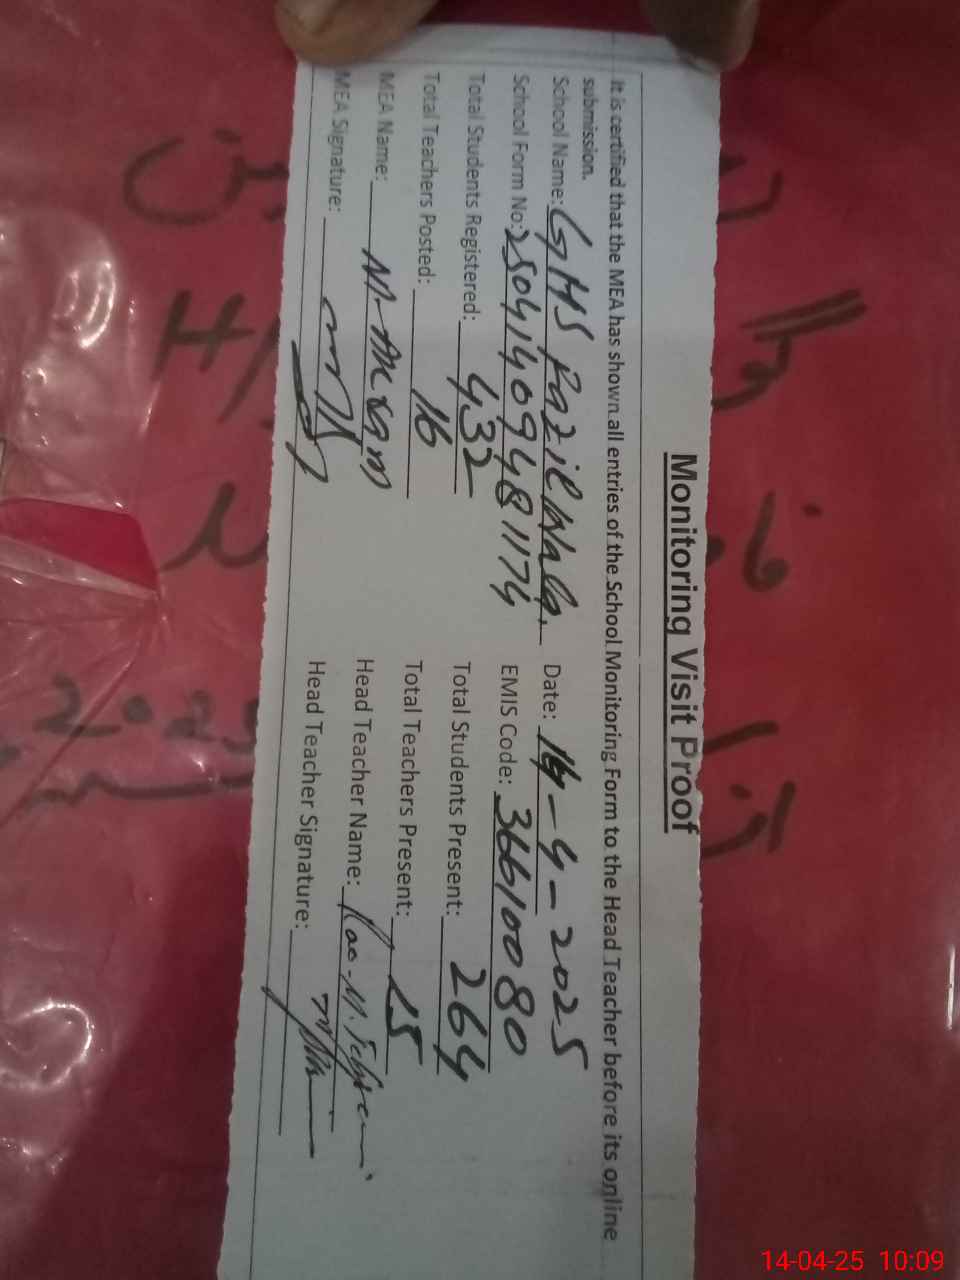 Monitoring Visit Proof
It is certified that the MEA has shown all entries of the School Monitoring Form to the Head Teacher before its online
submission.
School Name: GHS Pazil Wala. Date: 14-4-2025
School Form No: 25041409481174 EMIS Code: 36610080
Total Students Registered: 432 Total Students Present: 264
Total Teachers Posted: 16 Total Teachers Present: 15
MEA Name: M. Akram Head Teacher Name: Rao M.
MEA Signature: Head Teacher Signature:
14-04-25 10:09